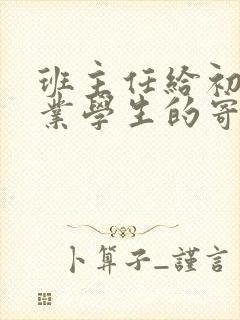 班主任给初
業學生的寄
卜算子_謹言